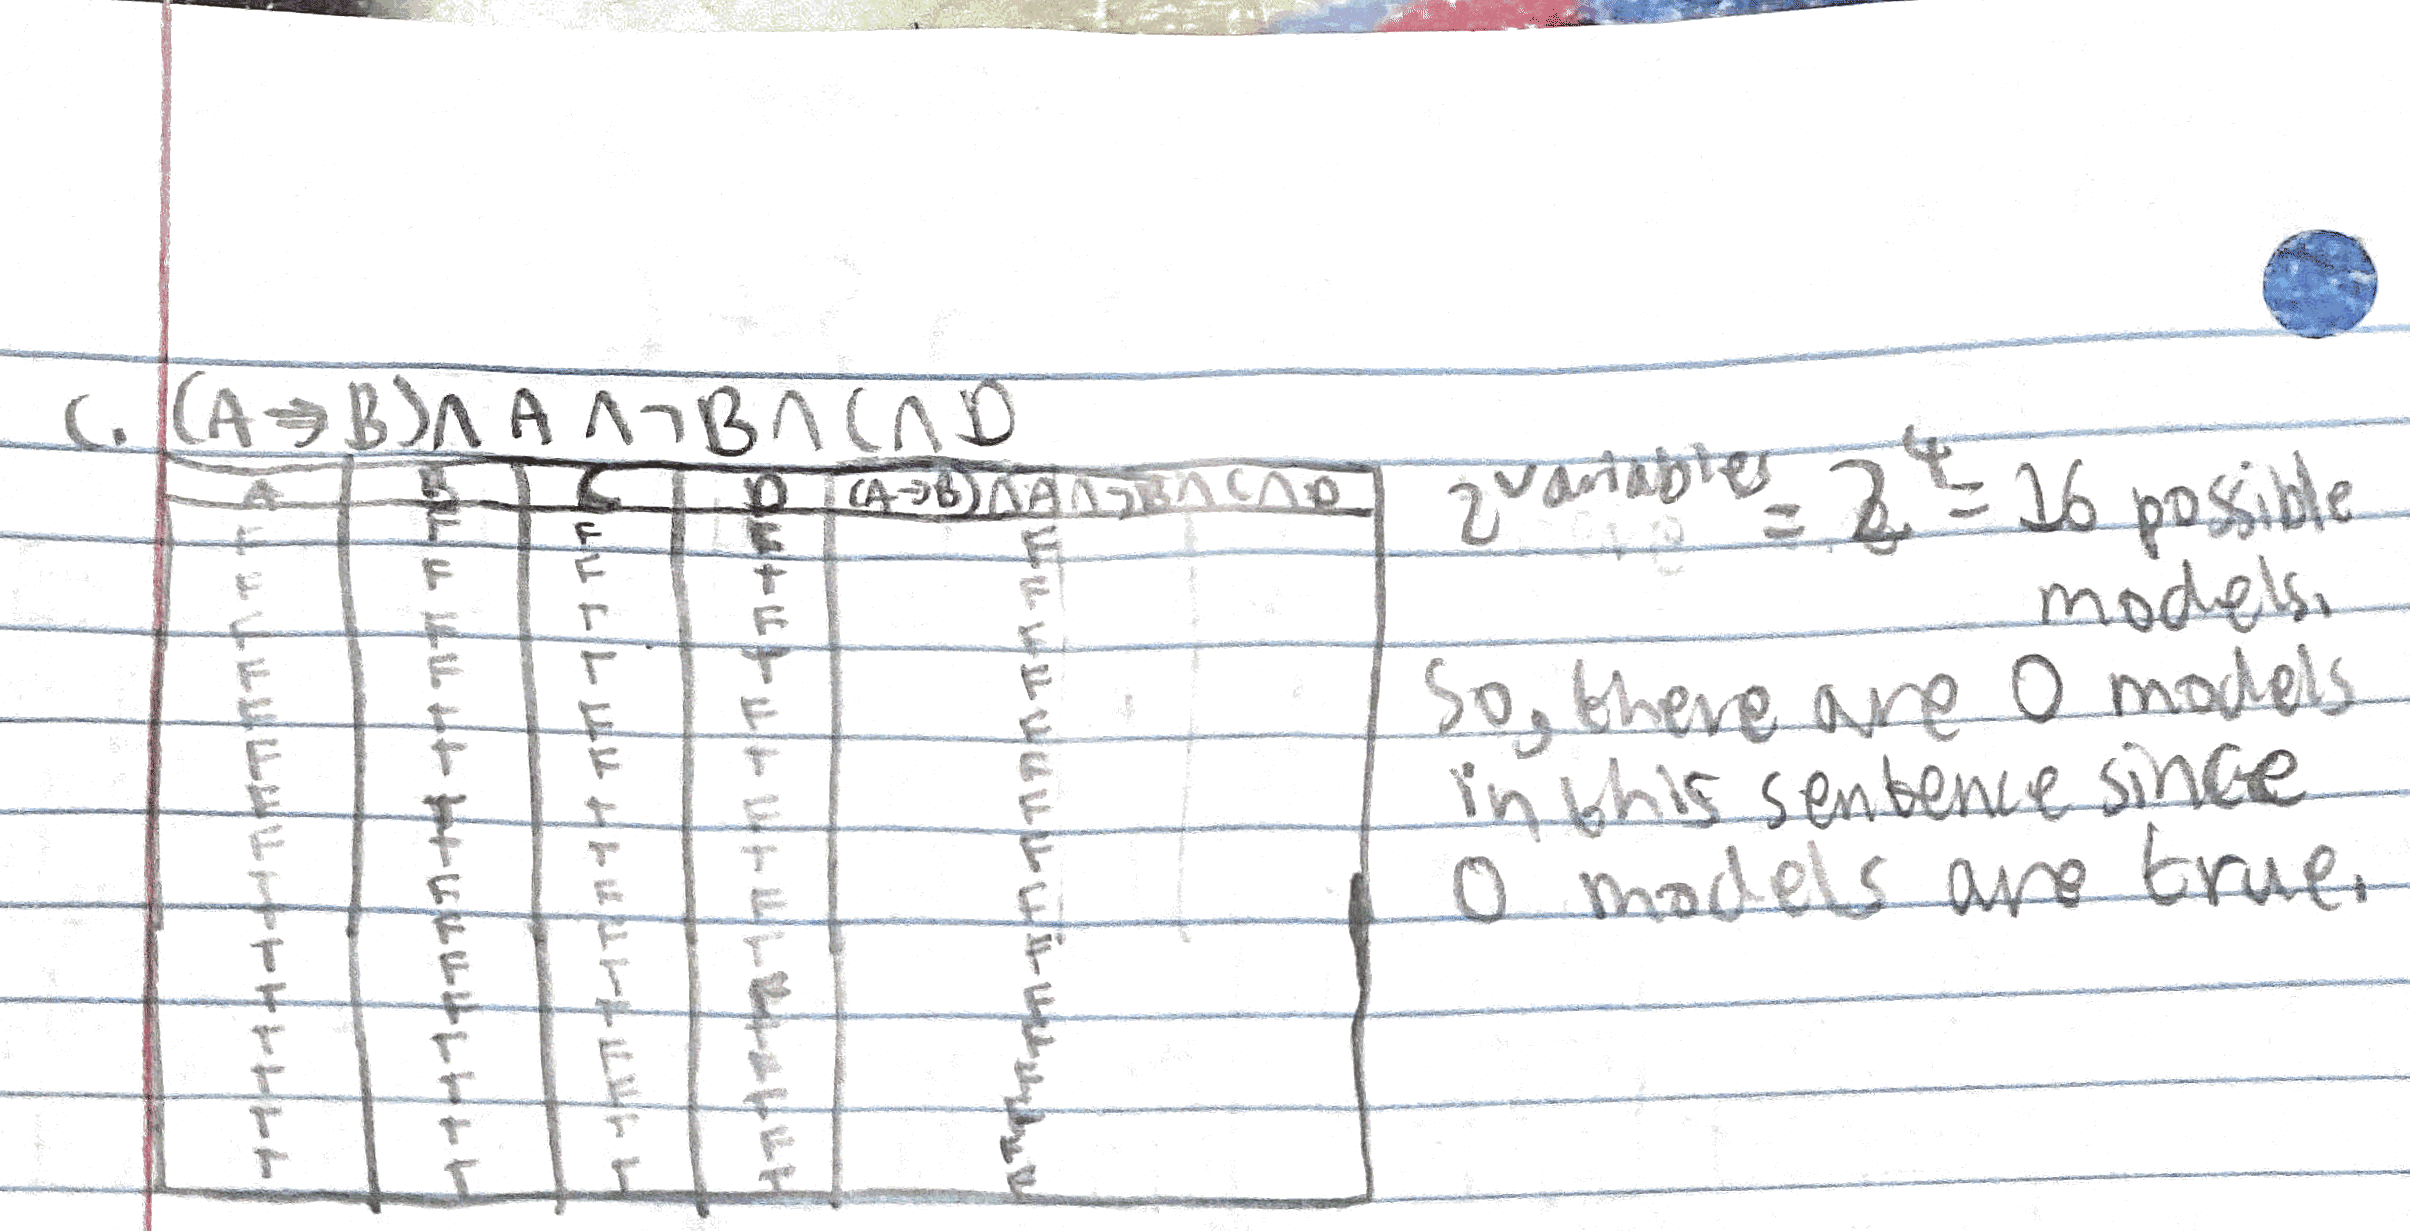 C. (A ⇒ B) ∧ A ∧ ¬B ∧ C ∧ D
A B C D (A⇒B)∧A∧¬B∧C∧D
F F F F F
F F F T F
F F T F F
F F T T F
F T F F F
F T F T F
F T T F F
F T T T F
T F F F F
T F F T F
T F T F F
T F T T F
T T F F F
T T F T F
T T T F F
T T T T F
2^variables = 2^4 = 16 possible
models.
So, there are 0 models
in this sentence since
0 models are true.